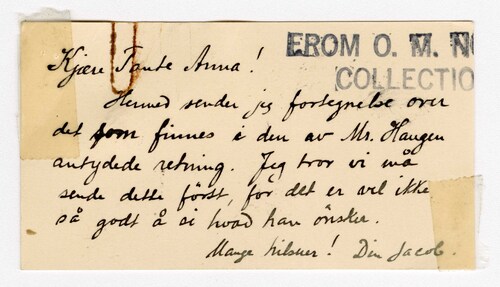 FROM O. M. NO
COLLECTIO
Kjære Tante Anna!
Hermed sender jeg fortegnelse over
det som finnes i den av Mr. Haugen
antydede retning. Jeg tror vi må
sende dette först, för det er vel ikke
så godt å si hvad han önsker.
Mange hilsner! Din Jacob.